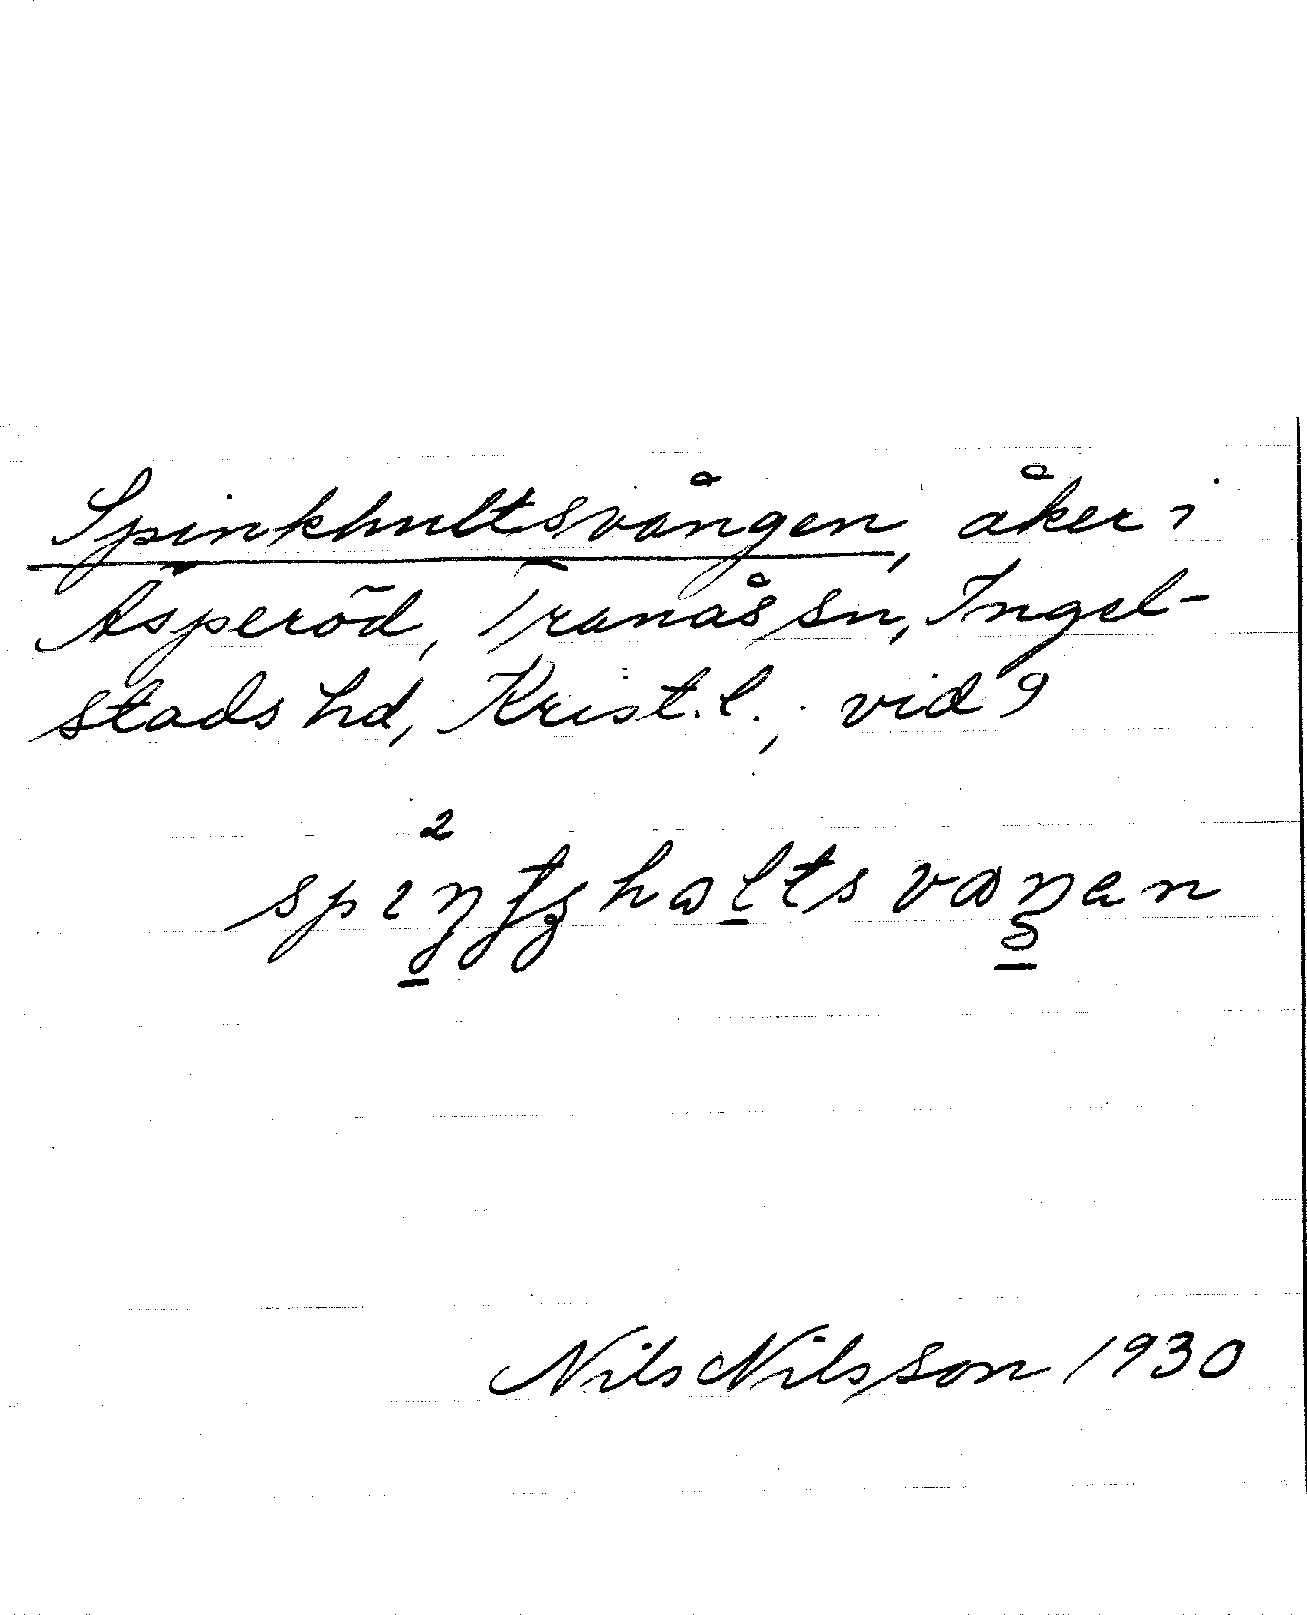 Spinkhultsvången, åker i
Asperöd, Tranås sn, Ingel-
stads hd, Krist. l., vid 9
Nils Nilsson 1930